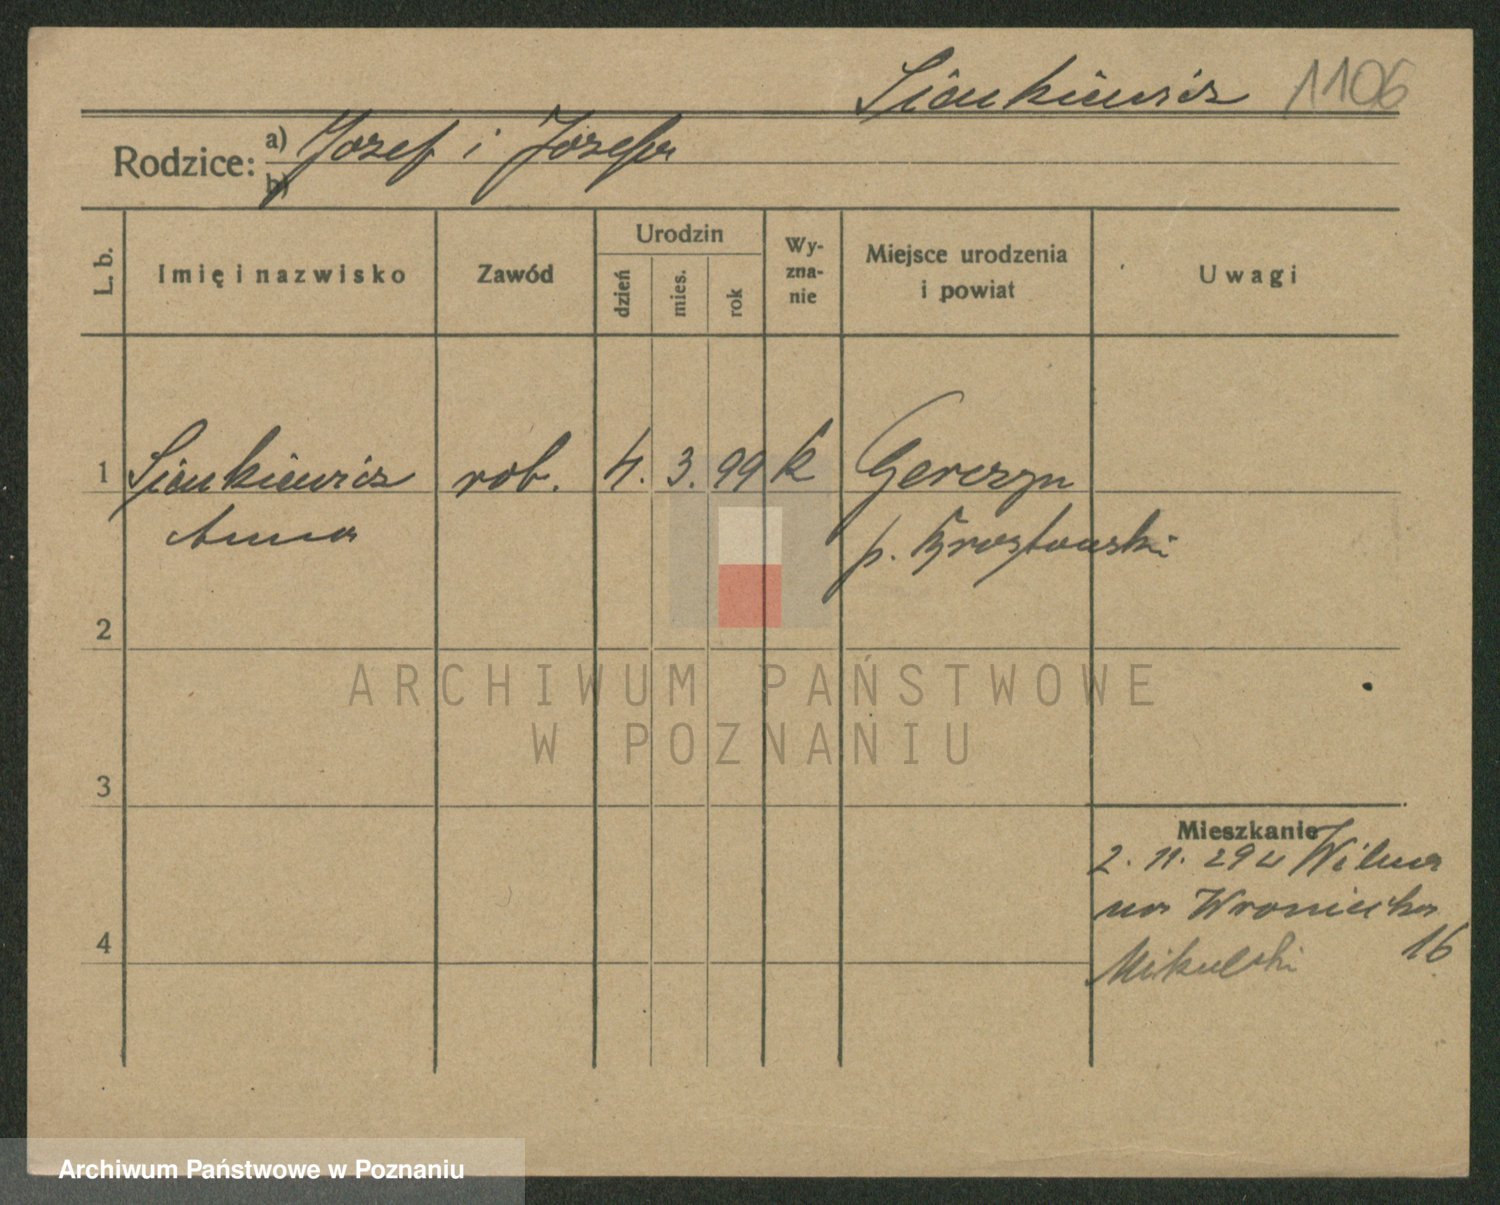 Siankiewicz 1106
Rodzice: a) Józef i Józefa
b)
L. b.
Imię i nazwisko
Zawód
Urodzin
dzień
mies.
rok
Wy-
zna-
nie
Miejsce urodzenia
i powiat
Uwagi
1 Siankiewicz rob. 4. 3. 99 k Gerczyn
Anna p.
2
3
4
Mieszkanie
2. 11. 29 z Wilna
na Wroniecka
16
Mikulski
ARCHIWUM PAŃSTWOWE
W POZNANIU
Archiwum Państwowe w Poznaniu